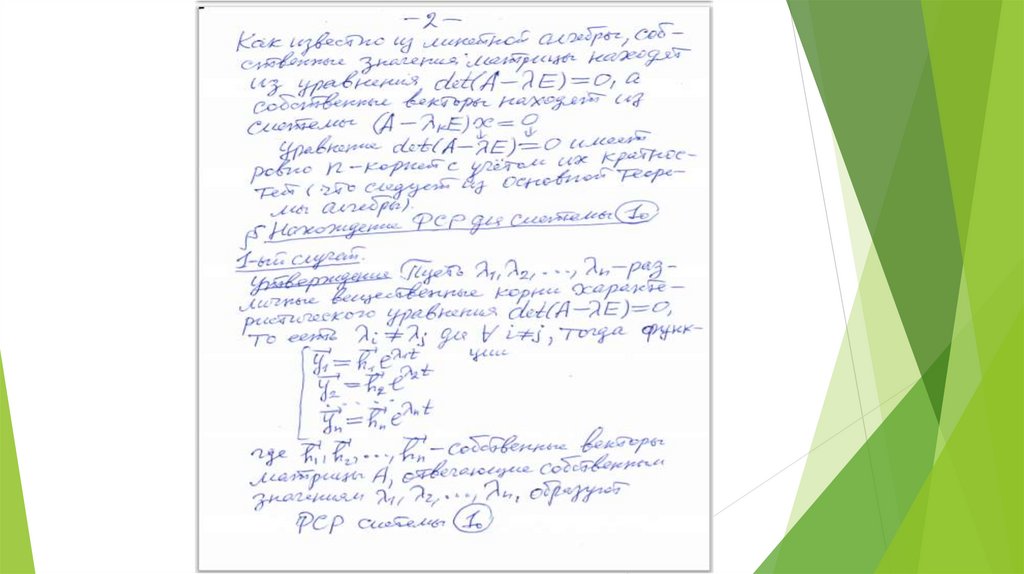 -2-
Как известно из линейной алгебры, соб-
ственные значения матрицы находят
из уравнения det(A-λE)=0, а
собственные векторы находят из
системы (A-λₖE)x=0
Уравнение det(A-λE)=0 имеет
ровно n-корней с учётом их кратнос-
тей (что следует из основной теоре-
мы алгебры).
§ Нахождение ФСР для системы 1₀
1-ый случай.
Утверждение Пусть λ₁,λ₂,...,λₙ-раз-
личные вещественные корни характе-
ристического уравнения det(A-λE)=0,
то есть λᵢ≠λⱼ для ∀ i≠j, тогда функ-
ции
y⃗₁=h⃗₁e^{λ₁t}
y⃗₂=h⃗₂e^{λ₂t}
. . . . .
y⃗ₙ=h⃗ₙe^{λₙt}
где h⃗₁,h⃗₂,...,h⃗ₙ-собственные векторы
матрицы A, отвечающие собственным
значениям λ₁,λ₂,...,λₙ, образуют
ФСР системы 1₀